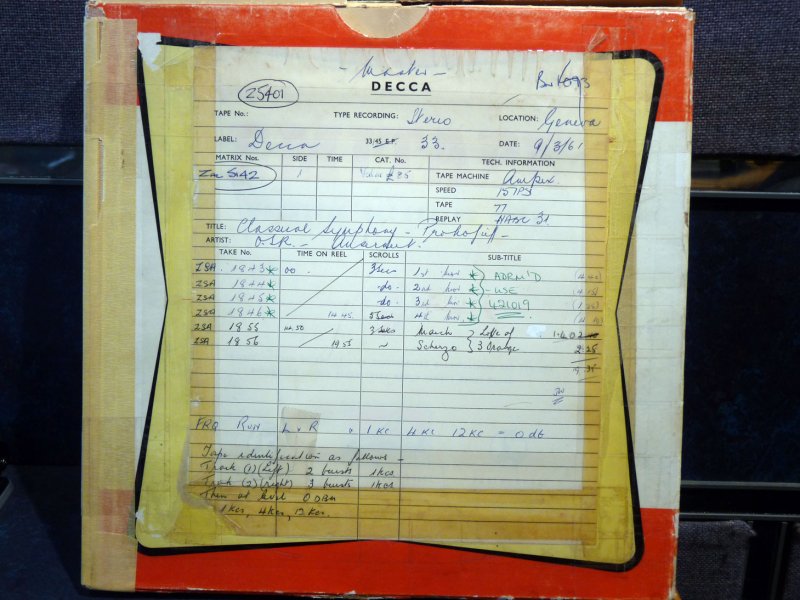 - Master -
DECCA
25401
TAPE No.: TYPE RECORDING: Stereo LOCATION: Geneva
LABEL: Decca 33/45 E.P. 33. DATE: 9/3/61
MATRIX Nos. SIDE TIME CAT. No. TECH. INFORMATION
5142 1 TAPE MACHINE Ampex.
SPEED 15 IPS
TAPE 77
REPLAY
TITLE: Classical Symphony - Prokofieff -
ARTIST: O.S.R. - Ansermet.
TAKE No. TIME ON REEL SCROLLS SUB-TITLE
ZSA. 1843 * 00. 3 Secs 1st *
ZSA 1844 * do. 2nd * - USE
ZSA 1845 * do. 3rd * 421019
1846 * 14.45. 4th *
ZSA 1855 14.50 3 Secs March } Love of 1.40
ZSA 1856 ~ Scherzo } 3 Orange
FRQ RUN L & R 1 KC 4 KC 12 KC = 0 db
Tape identification as follows -
Track (1) (Left) 2 bursts 1kcs
Trak (2) (right) 3 bursts 1kcs
Then at level 0 DBM
1 Kcs, 4 Kcs, 12 Kcs.